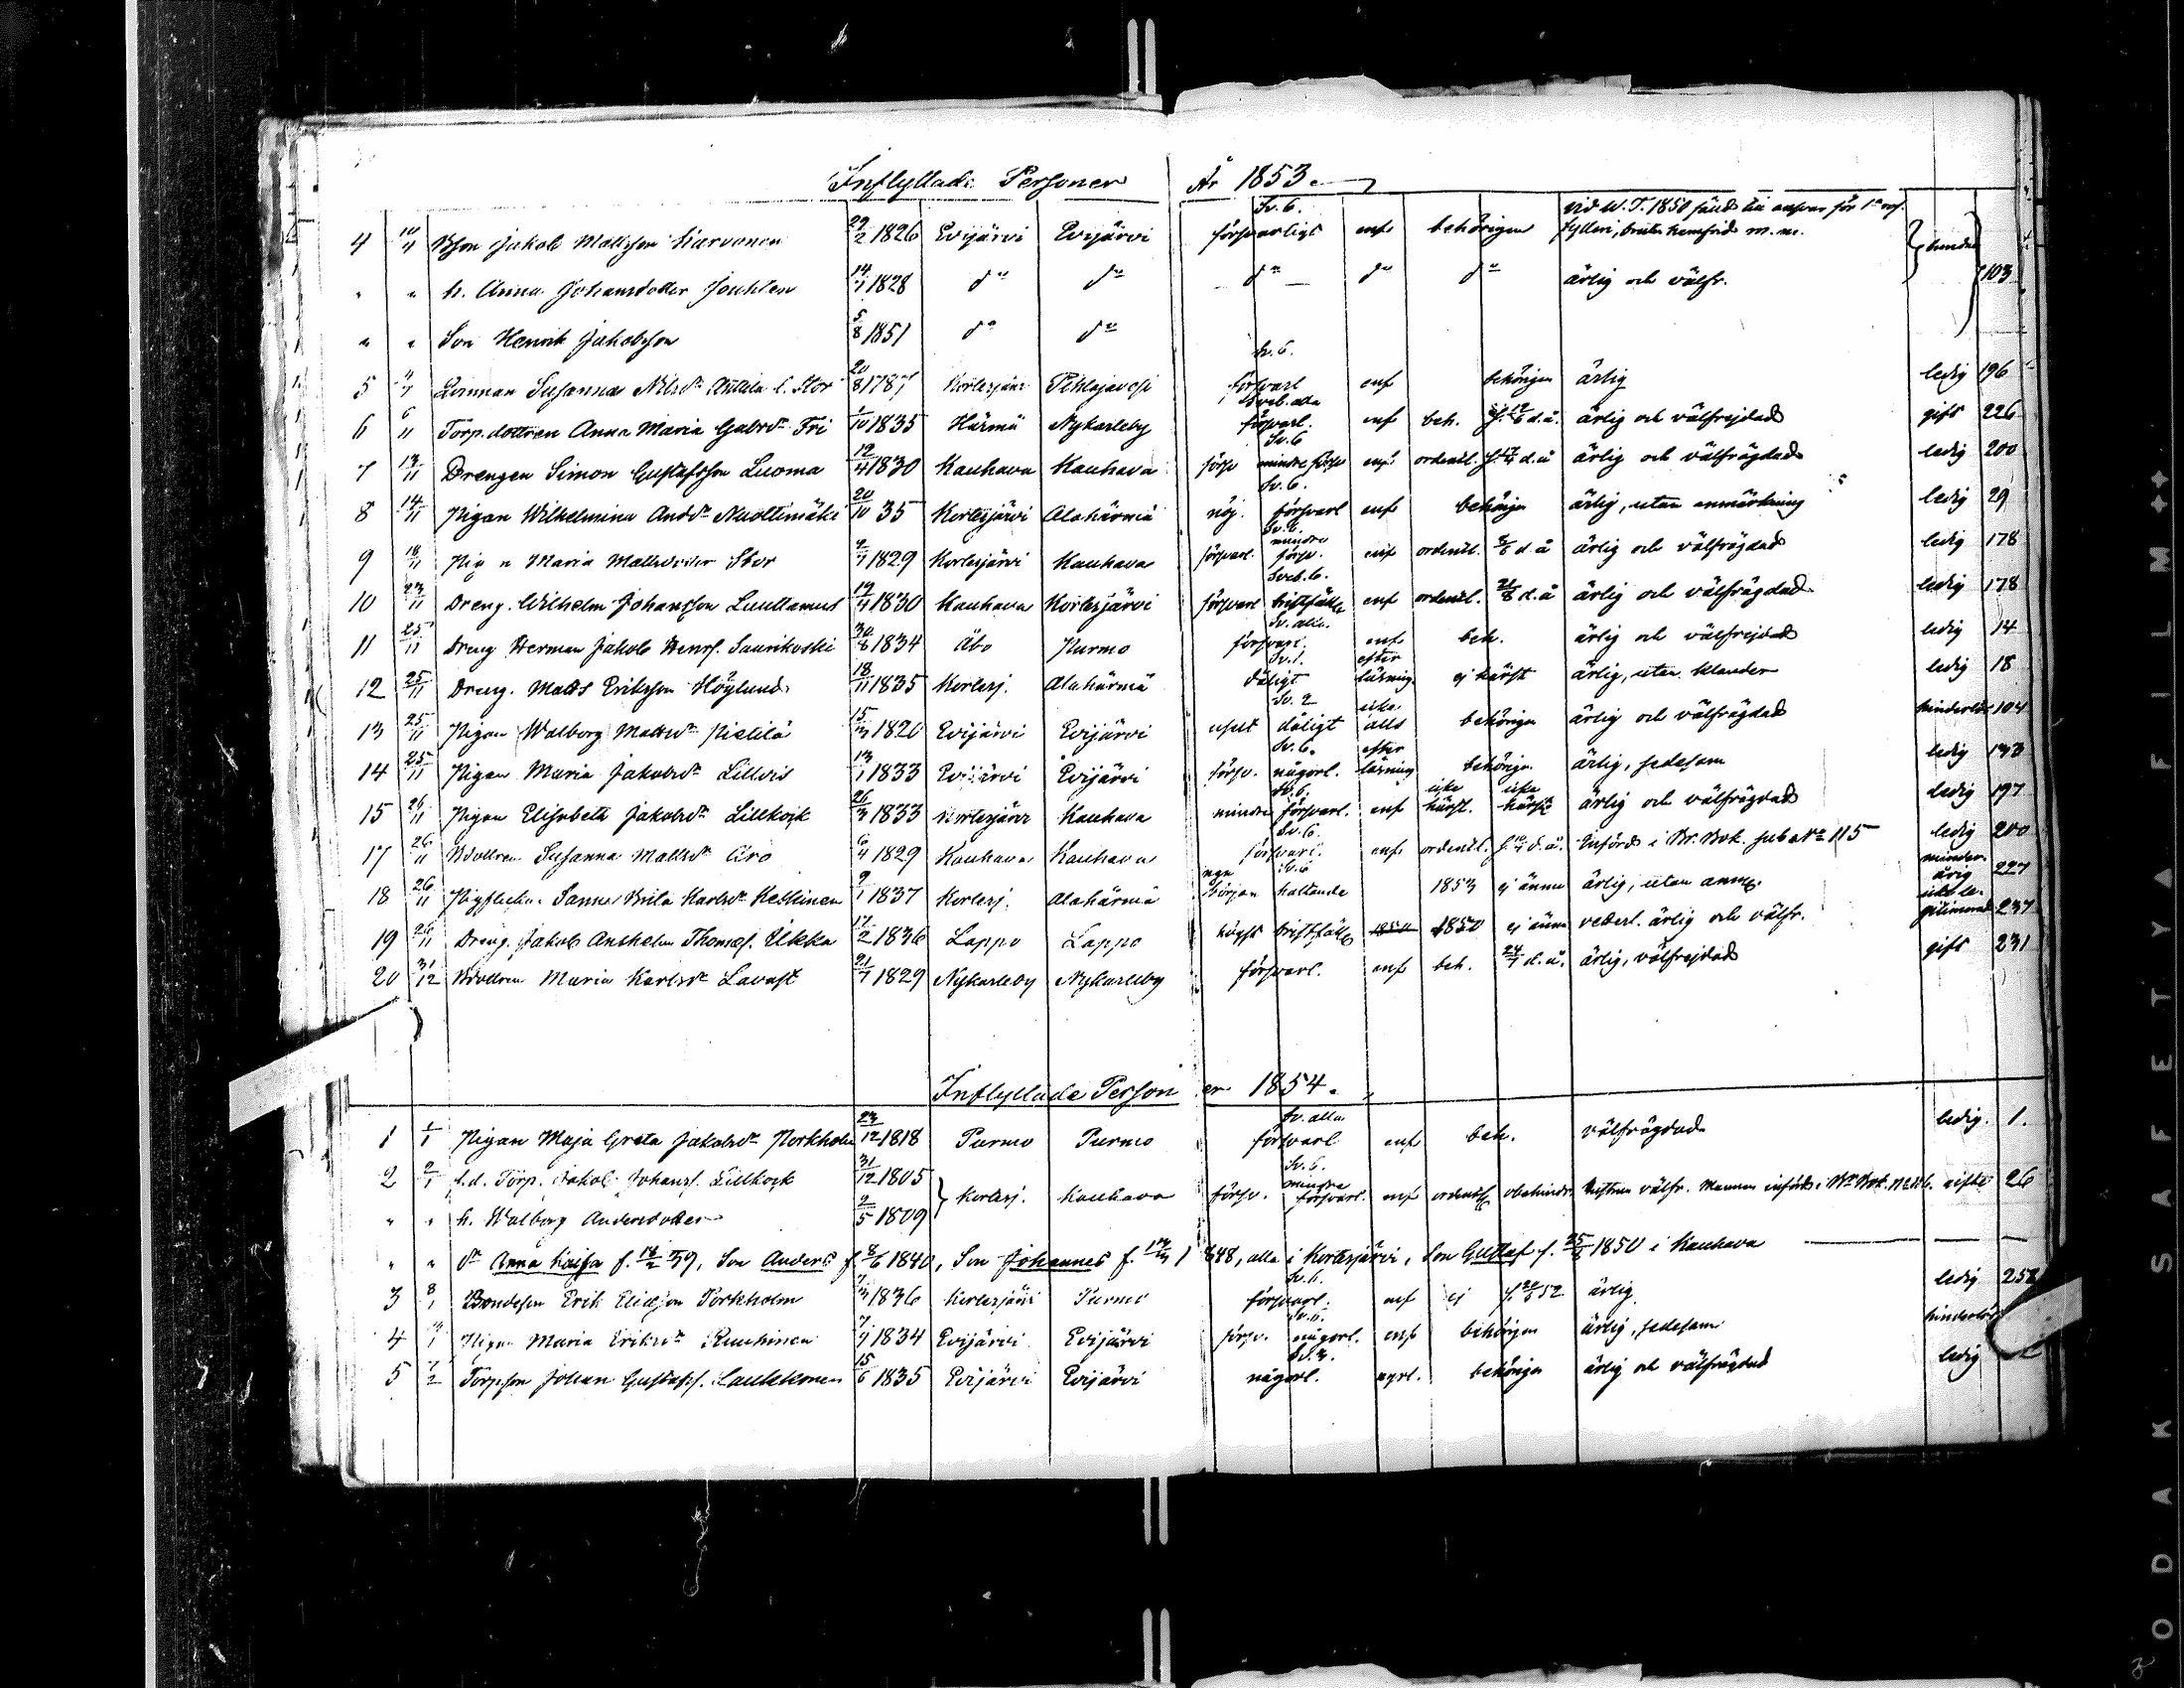 Inflyttade Personer År 1853.
4 10/11 Bson Jakob Mattsson Karvonen 29/2 1826 Evijärvi Evijärvi försvarligt Sv. 6. enf behörigen vid W.T. 1850 fälld till ansvar för 1sta res. fylleri, m.m.
" " h. Anna Johansdotter 14/7 1828 do do do do do ärlig och välfr. 103
" " Son Henrik Jakobsson 5/8 1851 do do
5 4/7 Qvinnan Susanna Nilsdr Anttila l. Stor 20/8 1787 Kortesjärvi Pihlajavesi försvarl Sv. 6. enf behörigen ärlig ledig 196
6 6/11 Torp.dottren Anna Maria Gabrdr Fri 1/10 1835 Härmä Nykarleby försvarl. Sveb. alla enf beh. d.å. ärlig och välfrejdad gift 226
7 13/11 Drengen Simon Gustafsson Luoma 12/4 1830 Kauhava Kauhava försv Sv. 6 mindre försv enf ordentl. d.å ärlig och välfrägdad ledig 200
8 14/11 Pigan Wilhelmina Anddr Nuottimäki 20/10 35 Kortesjärvi Alahärmä nöj. Sv. 6. försvarl enf behörigen ärlig, utan anmärkning ledig 29
9 18/11 Pigan Maria Mattsdotter Stor 1829 Kortesjärvi Kauhava försvarl. Sv. 6. mindre försv. enf ordentl. d.å ärlig och välfrägdad ledig 178
10 23/11 Dreng. Wilhelm Johansson Luuttamus 1830 Kauhava Kortesjärvi försvarl Sveb. 6. bristfälle enf ordentl. 21/8 d.å ärlig och välfrägdad ledig 178
11 25/11 Dreng Herman Jakob Henrs. Saunkoski 30/8 1834 Åbo Purmo försvarl. Sv. alla. enf. beh. ärlig och välfrejdad ledig 14
12 25/11 Dreng. Matts Eriksson Höglund 18/11 1835 Kortesj. Alahärmä dåligt Sv. 1. efter läsning ej hörft ärlig, utan klander ledig 18
13 25/11 Pigan Walborg Mattsdr Pietilä 15/3 1820 Evijärvi Evijärvi uselt Sv. 2 dåligt icke alls behörigen ärlig och välfrägdad hinderlös 104
14 25/11 Pigan Maria Jakobsdr Lillvis 13/1 1833 Evijärvi Evijärvi försv. Sv. 6. någorl. efter läsning behörigen ärlig, sedesam ledig 133
15 26/11 Pigan Elisabeta Jakobsdr Lillkojk 26/3 1833 Kortesjärvi Kauhava mindre Sv. 6. försvarl. enf icke icke ärlig och välfrägdad ledig 197
17 26/11 Bdottren Susanna Mattsdr Aro 6/4 1829 Kauhava Kauhava försvarl. Sv. 6. enf ordentl. d.å. Införd i Br. Bok. sub No 115 ledig 200
18 26/11 Sanna Brita Karlsdr Keskinen 9/1 1837 Kortesj. Alahärmä ngn början Sv. 6 hållande 1853 ej ännu ärlig, utan anmg. minderårig 227
19 26/11 Dreng. Jakob Anshelm Thomas. Ukka 17/2 1836 Lappo Lappo högst bristfälle 1850 1850 ej ännu vederl. ärlig och välfr. 237
20 31/12 Bdottren Maria Karlsdr Lavast 21/7 1829 Nykarleby Nykarleby försvarl. enf beh. 24/7 d.å. ärlig, välfrejdad gift 231
Inflyttade Personer 1854.
1 1/1 Pigan Maja Greta Jakobsdr Porkholm 23/12 1818 Purmo Purmo försvarl Sv. alla enf beh. välfrägdad ledig. 1.
2 2/1 f.d. Torp. Jakob Johans. Lillkojk 31/12 1805 Kortesj. Kauhava försv. Sv. 6. mindre försvarl. enf ordentl obehindr. Hustrun välfr. Mannen införd i Br. Bok. gifte 26
" " h. Walborg Andersdotter 2/5 1809
" " dr Anna Kaisa f. 39, Son Anders f 8/6 1840, Son Johannes f. 1848, alla i Kortesjärvi, Son Gustaf f. 25/8 1850 i Kauhava
3 8/1 Bondeson Erik Eliasson Porkholm 7/3 1836 Kortesjärvi Purmo försvarl. Sv. 6. enf ej 52 ärlig ledig 258
4 Pigan Maria Eriksdr Ruuhinen 7/9 1834 Evijärvi Evijärvi försv. Sv. 6. någorl. enf behörigen ärlig, sedesam hinderlös
5 7/2 Torpson Johan Gustafss. Laukkonen 15/6 1835 Evijärvi Evijärvi någorl. Sv. 3. ngrl. behörigen ärlig och välfrägdad ledig
KODAK SAFETY FILM